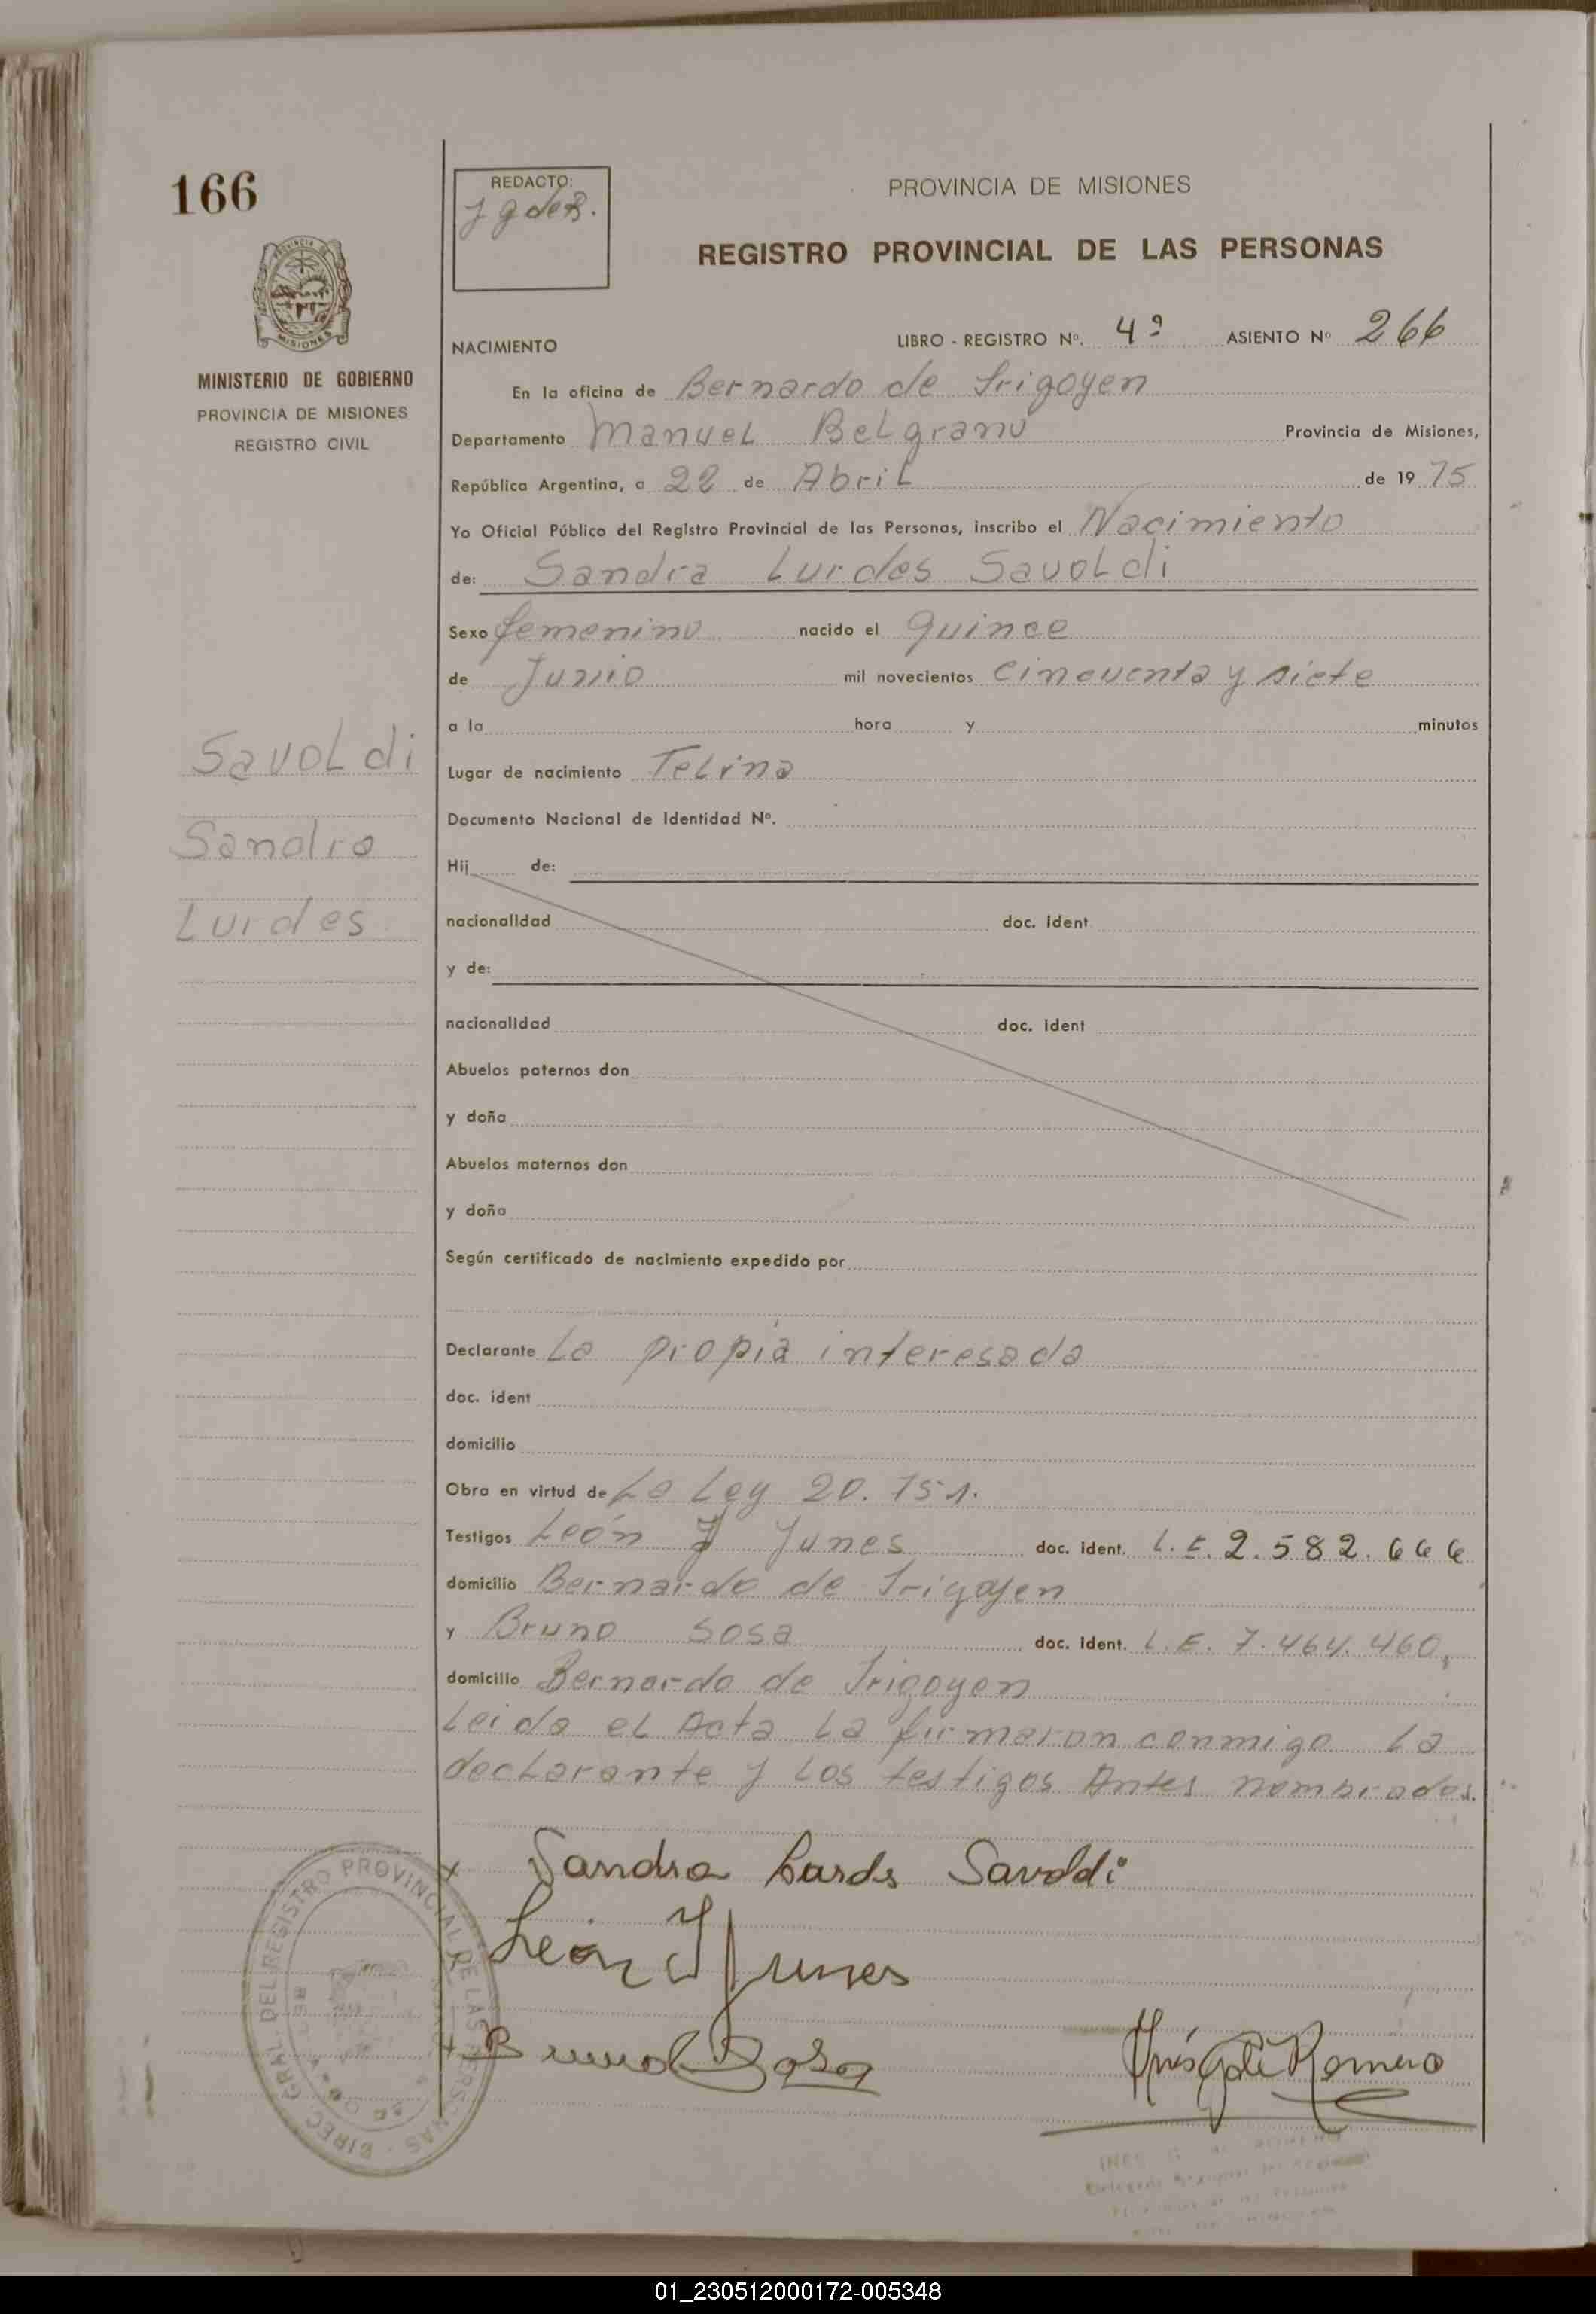 166
REDACTO:
J g de R.
PROVINCIA DE MISIONES
REGISTRO PROVINCIAL DE LAS PERSONAS
MISIONES
MINISTERIO DE GOBIERNO
PROVINCIA DE MISIONES
REGISTRO CIVIL
NACIMIENTO LIBRO - REGISTRO Nº. 4º ASIENTO Nº 266
En la oficina de Bernardo de Irigoyen
Departamento Manuel Belgrano Provincia de Misiones,
República Argentina, a 22 de Abril de 19 75
Yo Oficial Público del Registro Provincial de las Personas, inscribo el Nacimiento
de: Sandra Lurdes Savoldi
Sexo femenino nacido el quince
de Junio mil novecientos cincuenta y siete
a la hora y minutos
Savoldi
Sandra
Lurdes
Lugar de nacimiento Telina
Documento Nacional de Identidad Nº.
Hij de:
nacionalidad doc. ident
y de:
nacionalidad doc. ident
Abuelos paternos don
y doña
Abuelos maternos don
y doña
Según certificado de nacimiento expedido por
Declarante La propia interesada
doc. ident
domicilio
Obra en virtud de La Ley 20.751.
Testigos León J Junes doc. ident. L.E. 2.582.666
domicilio Bernardo de Irigoyen
y Bruno Sosa doc. ident. L.E. 7.464.460,
domicilio Bernardo de Irigoyen
Leida el Acta la firmaron conmigo la
declarante y los testigos Antes nombrados.
Sandra Lurds Savoldi
León J Junes
Bruno Sosa
Inés G de Romero
DIREC. GRAL. DEL REGISTRO PROVINCIAL DE LAS PERSONAS
01_230512000172-005348